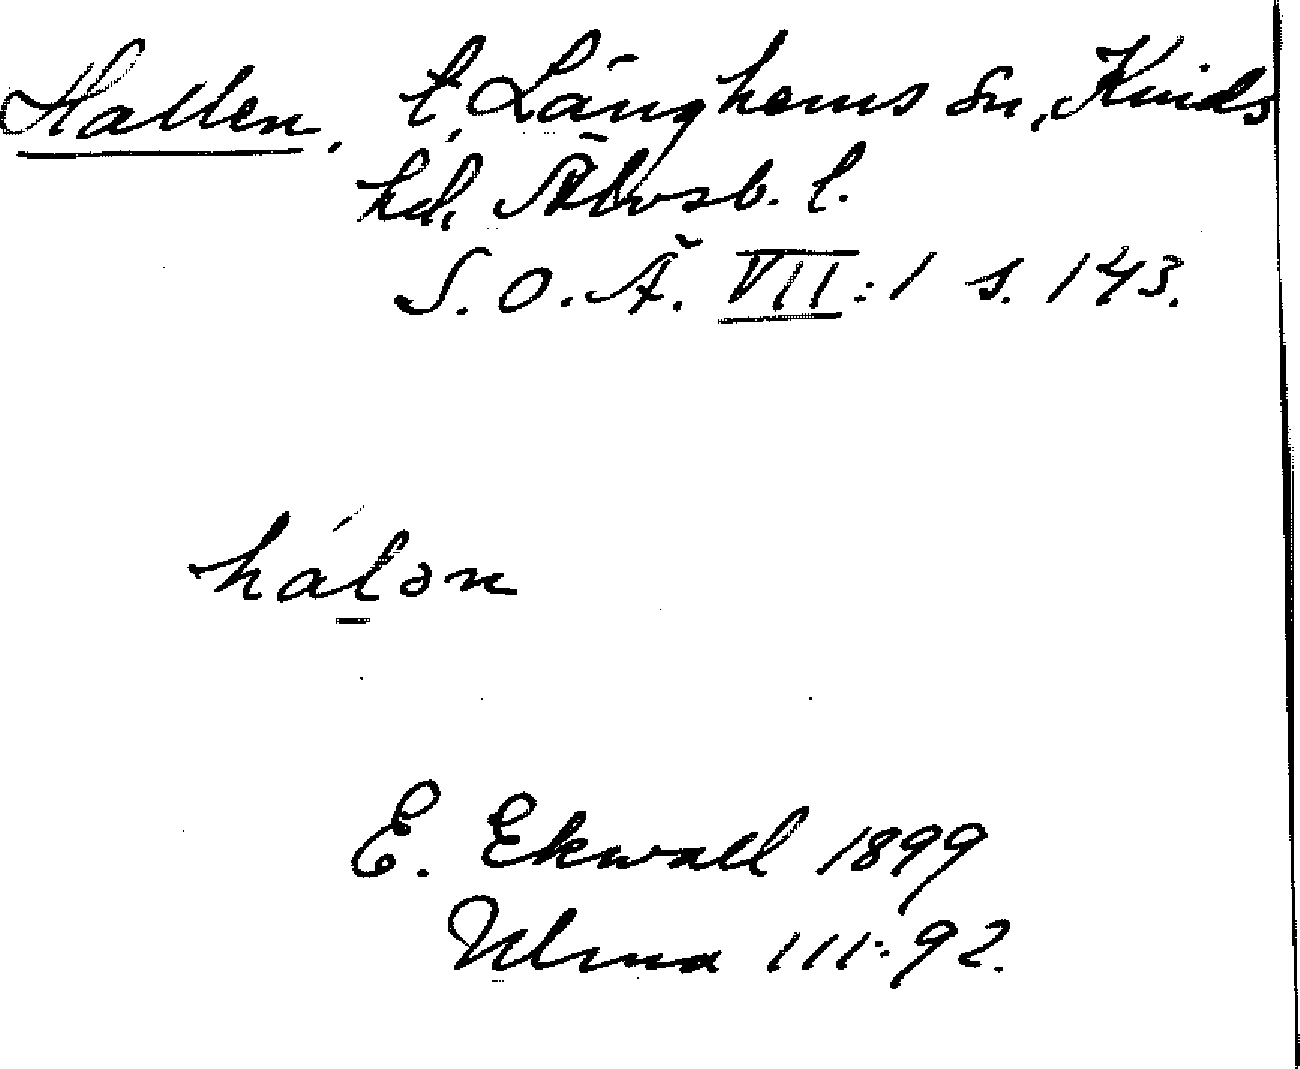 Hallen, t. Länghems sn, Kinds
hd, Älvsb. l.
S. O. Ä. VII:1 s. 143.
hál̲ən
E. Ekwall 1899
Ulma 111:92.